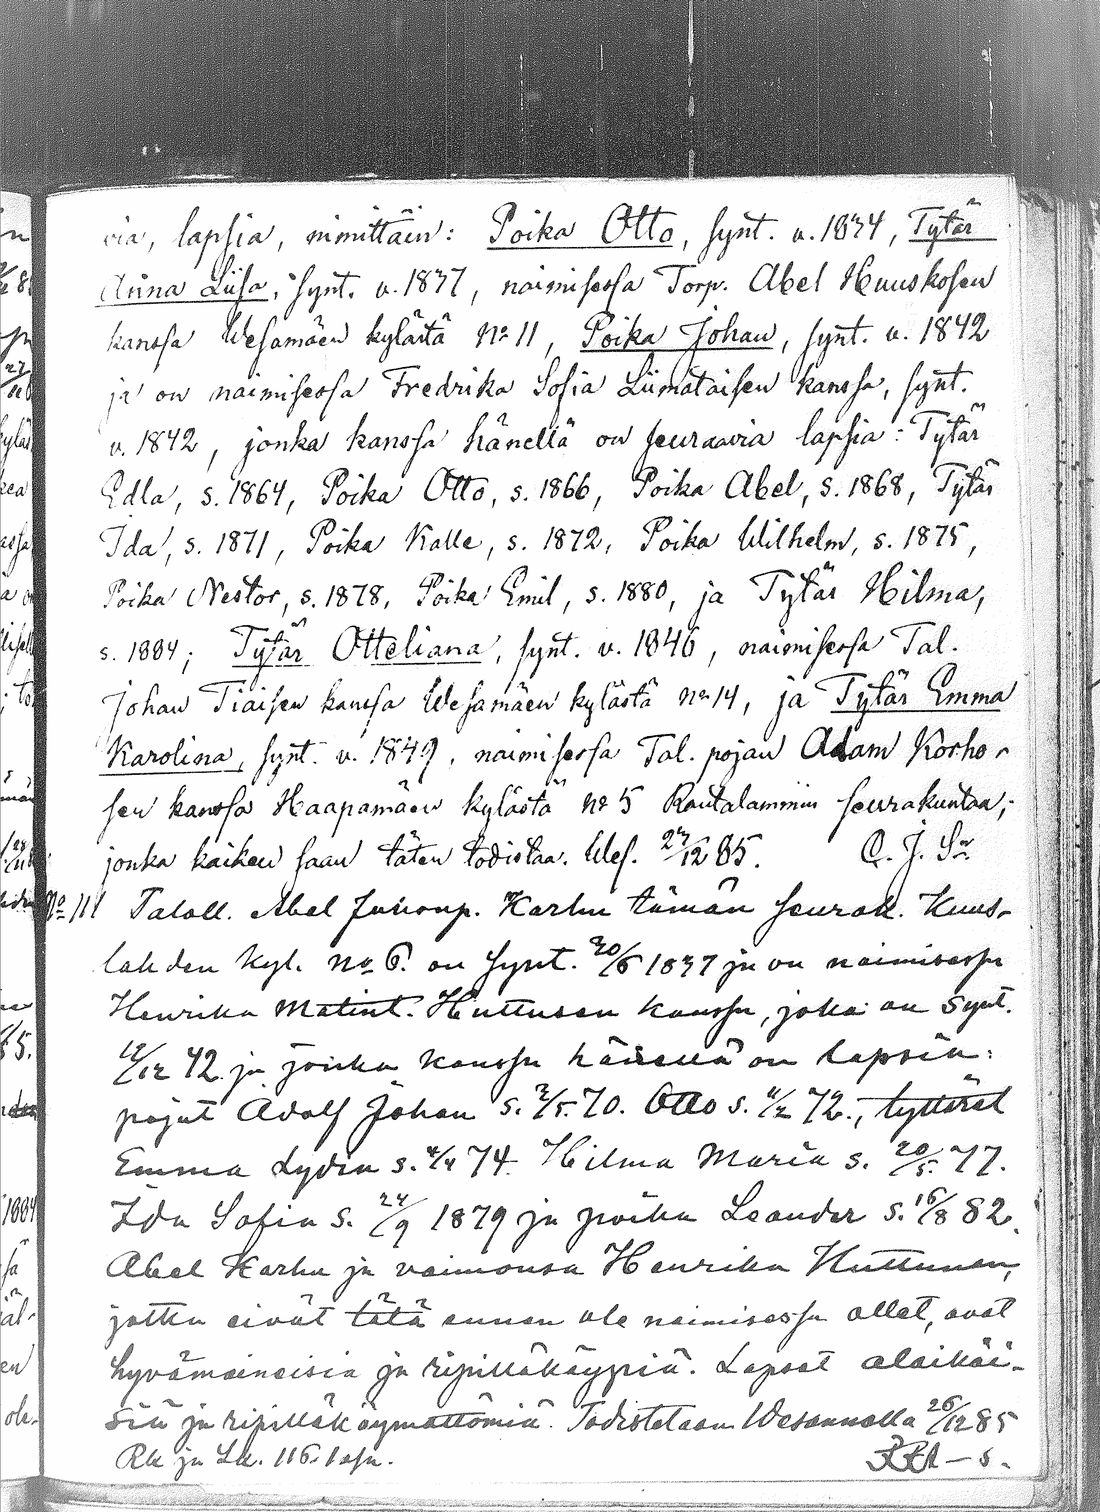 via, lapsia, nimittäin: Poika Otto, synt. v. 1834, Tytär
Anna Liisa, synt. v. 1837, naimisessa Torp. Abel Huuskosen
kanssa Wesamäen kylästä No 11, Poika Johan, synt. v. 1842
ja on naimisessa Fredrika Sofia Liimataisen kanssa, synt.
v. 1842, jonka kanssa hänellä on seuraavia lapsia: Tytär
Edla, s. 1864, Poika Otto, s. 1866, Poika Abel, s. 1868, Tytär
Ida, s. 1871, Poika Kalle, s. 1872, Poika Wilhelm, s. 1875,
Poika Nestor, s. 1878, Poika Emil, s. 1880, ja Tytär Hilma,
s. 1884; Tytär Otteliana, synt. v. 1846, naimisessa Tal.
Johan Tiaisen kanssa Wesamäen kylästä No 14, ja Tytär Emma
Karolina, synt. v. 1849, naimisessa Tal. pojan Adam Korho-
sen kanssa Haapamäen kylästä No 5 Rautalammin seurakuntaa,
jonka kaiken saan täten todistaa. Wes. 27/12 85. C. J. Sn
No 111 Taloll. Abel Juhonp. Karhu tämän seurak. Kuus-
lahden kyl. No 6. on synt. 30/6 1837 ja on naimisessa
Henrika Matint. Huttusen kanssa, joka on synt.
12/12 42 ja jonka kanssa hänellä on lapsia:
pojat Adolf Johan s. 2/5 70. Otto s. 4/2 72., tyttäret
Emma Lydia s. 4/4 74. Hilma Maria s. 20/5 77.
Ida Sofia s. 24/9 1879 ja poika Leander s. 16/8 82.
Abel Karhu ja vaimonsa Henrika Huttunen,
jotka eivät tätä ennen ole naimisessa ollet, ovat
hyvämaineisia ja ripilläkäypiä. Lapset alaikäi-
siä ja ripilläkäymättömiä. Todistetaan Wesannolla 26/12 85
Rk ja Lk. 116.